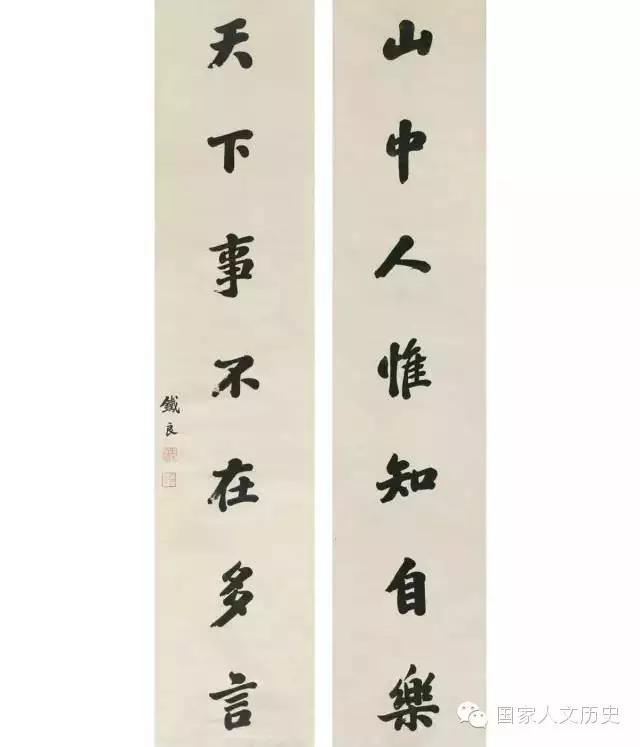 山中人惟知自樂
天下事不在多言
鐵良
国家人文历史